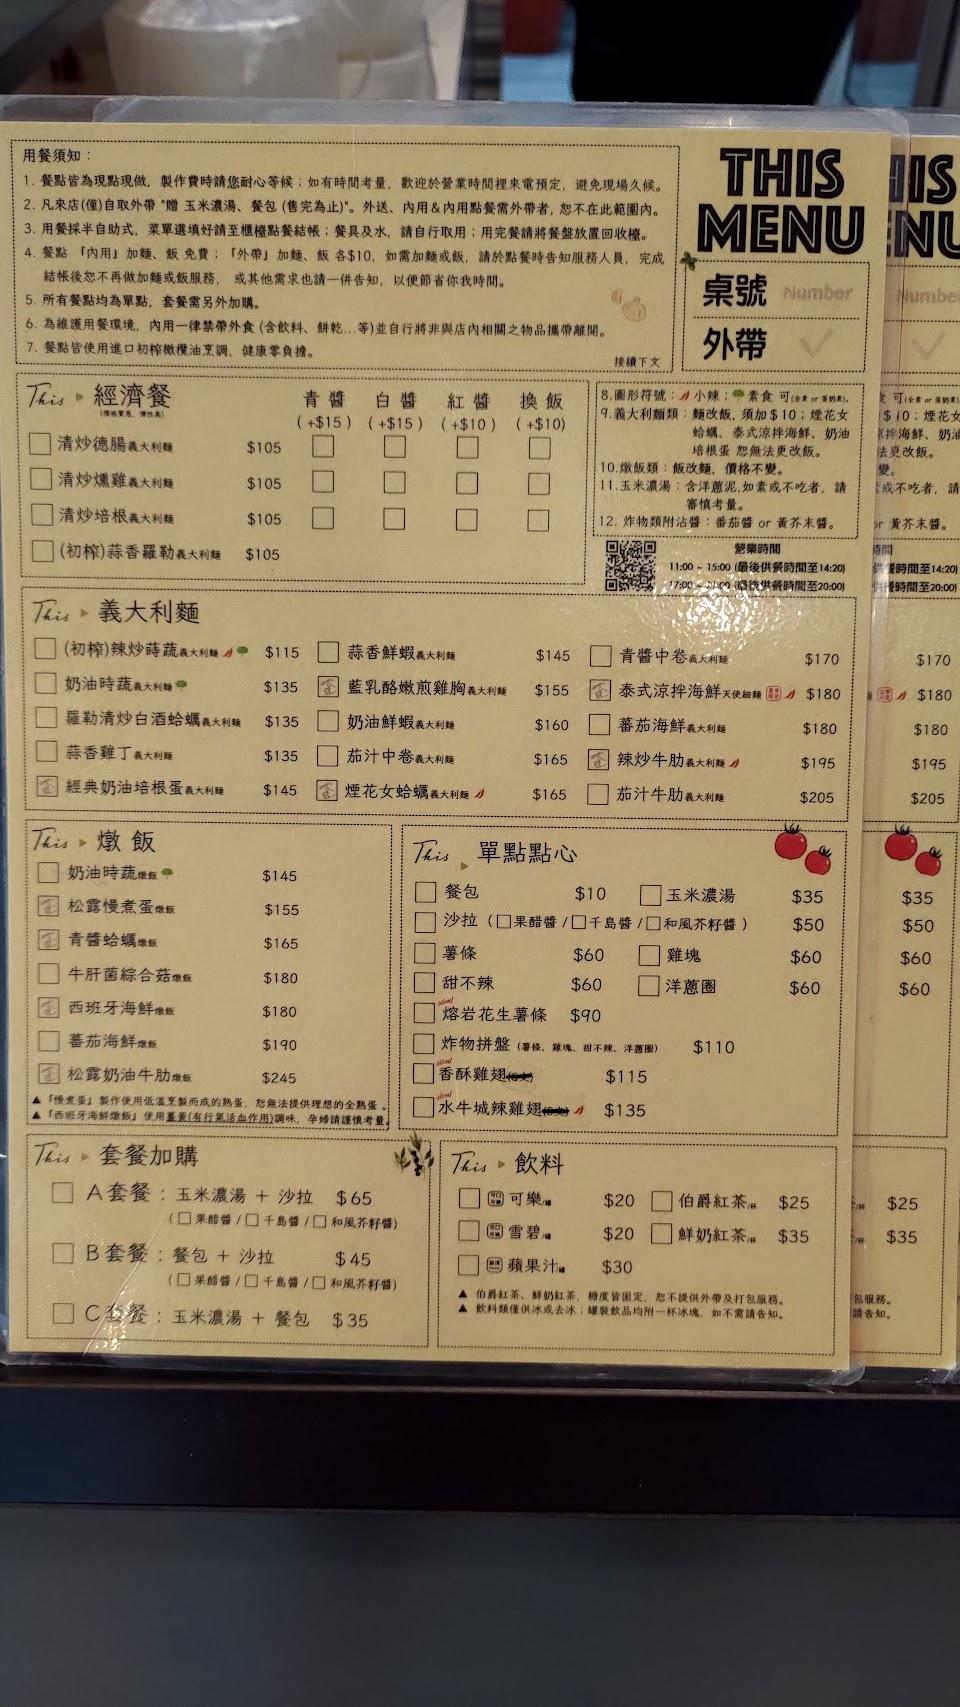 用餐須知：
1. 餐點皆為現點現做，製作費時請您耐心等候；如有時間考量，歡迎於營業時間裡來電預定，避免現場久候。
2. 凡來店(僅)自取外帶 "贈 玉米濃湯、餐包 (售完為止)"。外送、內用＆內用點餐需外帶者，恕不在此範圍內。
3. 用餐採半自助式，菜單選填好請至櫃檯點餐結帳；餐具及水，請自行取用；用完餐請將餐盤放置回收檯。
4. 餐點 『內用』加麵、飯 免費；『外帶』加麵、飯 各$10，如需加麵或飯，請於點餐時告知服務人員，完成
結帳後恕不再做加麵或飯服務， 或其他需求也請一併告知，以便節省你我時間。
5. 所有餐點均為單點，套餐需另外加購。
6. 為維護用餐環境，內用一律禁帶外食 (含飲料、餅乾...等)並自行將非與店內相關之物品攜帶離開。
7. 餐點皆使用進口初榨橄欖油烹調，健康零負擔。
接續下文
THIS
MENU
桌號 Number
外帶
This 經濟餐 青醬 白醬 紅醬 換飯
(價格實惠、彈性高) (+$15) (+$15) (+$10) (+$10)
清炒德腸義大利麵 $105
清炒燻雞義大利麵 $105
清炒培根義大利麵 $105
(初榨)蒜香羅勒義大利麵 $105
8.圖形符號： 小辣； 素食 可(全素 or 蛋奶素)。
9.義大利麵類：麵改飯，須加＄10；煙花女
蛤蠣、泰式涼拌海鮮、奶油
培根蛋 恕無法更改飯。
10.燉飯類：飯改麵，價格不變。
11.玉米濃湯：含洋蔥泥，如素或不吃者，請
審慎考量。
12. 炸物類附沾醬：番茄醬 or 黃芥末醬。
營業時間
11:00 ~ 15:00 (最後供餐時間至14:20)
17:00 ~ 21:00 (最後供餐時間至20:00)
This 義大利麵
(初榨)辣炒蒔蔬義大利麵 $115
奶油時蔬義大利麵 $135
羅勒清炒白酒蛤蠣義大利麵 $135
蒜香雞丁義大利麵 $135
經典奶油培根蛋義大利麵 $145
蒜香鮮蝦義大利麵 $145
藍乳酪嫩煎雞胸義大利麵 $155
奶油鮮蝦義大利麵 $160
茄汁中卷義大利麵 $165
煙花女蛤蠣義大利麵 $165
青醬中卷義大利麵 $170
泰式涼拌海鮮天使細麵 $180
蕃茄海鮮義大利麵 $180
辣炒牛肋義大利麵 $195
茄汁牛肋義大利麵 $205
This 燉飯
奶油時蔬燉飯 $145
松露慢煮蛋燉飯 $155
青醬蛤蠣燉飯 $165
牛肝菌綜合菇燉飯 $180
西班牙海鮮燉飯 $180
蕃茄海鮮燉飯 $190
松露奶油牛肋燉飯 $245
▲『慢煮蛋』製作使用低溫烹製而成的熟蛋，恕無法提供理想的全熟蛋。
▲『西班牙海鮮燉飯』使用薑黃(有行氣活血作用)調味，孕婦請謹慎考量。
This 單點點心
餐包 $10 玉米濃湯 $35
沙拉 ( 果醋醬 / 千島醬 / 和風芥籽醬 ) $50
薯條 $60 雞塊 $60
甜不辣 $60 洋蔥圈 $60
熔岩花生薯條 $90
炸物拼盤 (薯條、雞塊、甜不辣、洋蔥圈) $110
香酥雞翅 $115
水牛城辣雞翅 $135
This 套餐加購
A套餐：玉米濃湯 + 沙拉 $65
( 果醋醬 / 千島醬 / 和風芥籽醬)
B套餐：餐包 + 沙拉 $45
( 果醋醬 / 千島醬 / 和風芥籽醬)
C套餐：玉米濃湯 + 餐包 $35
This 飲料
可樂/罐 $20 伯爵紅茶/杯 $25
雪碧/罐 $20 鮮奶紅茶/杯 $35
蘋果汁/罐 $30
▲ 伯爵紅茶、鮮奶紅茶，糖度皆固定，恕不提供外帶及打包服務。
▲ 飲料類僅供冰或去冰；罐裝飲品均附一杯冰塊，如不需請告知。